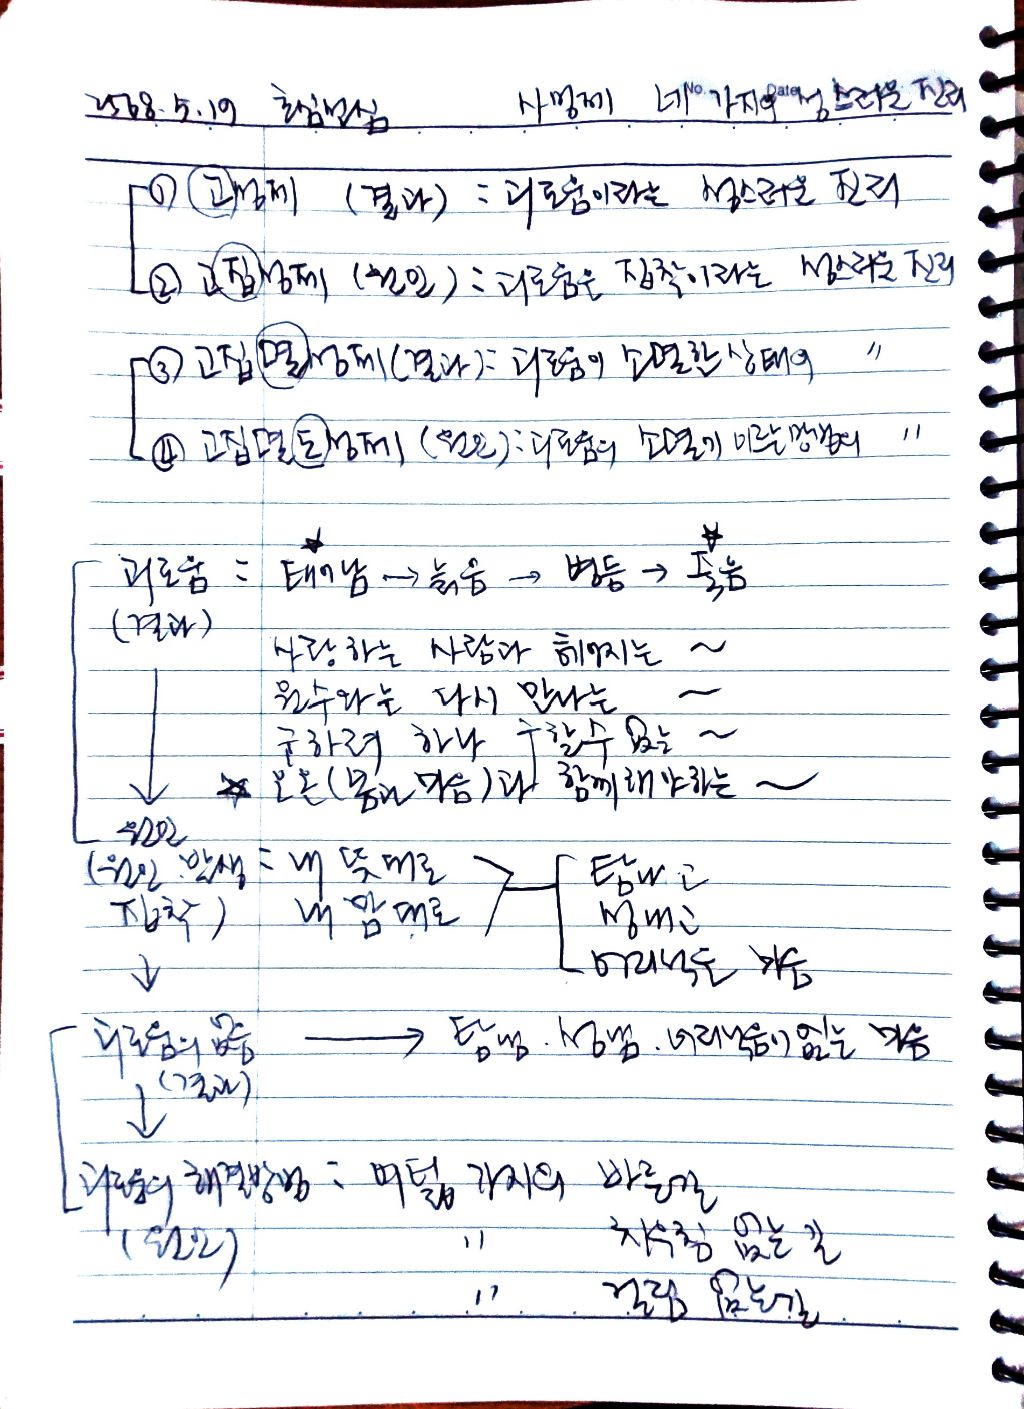 2568.5.19 초심법심 사성제 네 가지의 성스러운 진리
No. Date
① 고성제 (결과) : 괴로움이라는 성스러운 진리
② 고집성제 (원인) : 괴로움은 집착이라는 성스러운 진리
③ 고집멸성제 (결과) : 괴로움이 소멸한 상태의 〃
④ 고집멸도성제 (원인) : 괴로움의 소멸에 이르는 방법의 〃
괴로움 : 태어남 → 늙음 → 병듦 → 죽음
(결과)
사랑하는 사람과 헤어지는 ~
원수와는 다시 만나는 ~
구하려 하나 구할수 없는 ~
★ 오온(몸과 마음)과 함께해야하는 ~
원인
(원인 발생 : 내 뜻대로 탐내고
집착) 내 맘대로 성내고
어리석은 마음
괴로움의 없음 → 탐냄. 성냄. 어리석음이 없는 마음
(결과)
괴로움의 해결방법 : 여덟 가지의 바른길
(원인) 〃 치우침 없는 길
〃 걸림 없는길